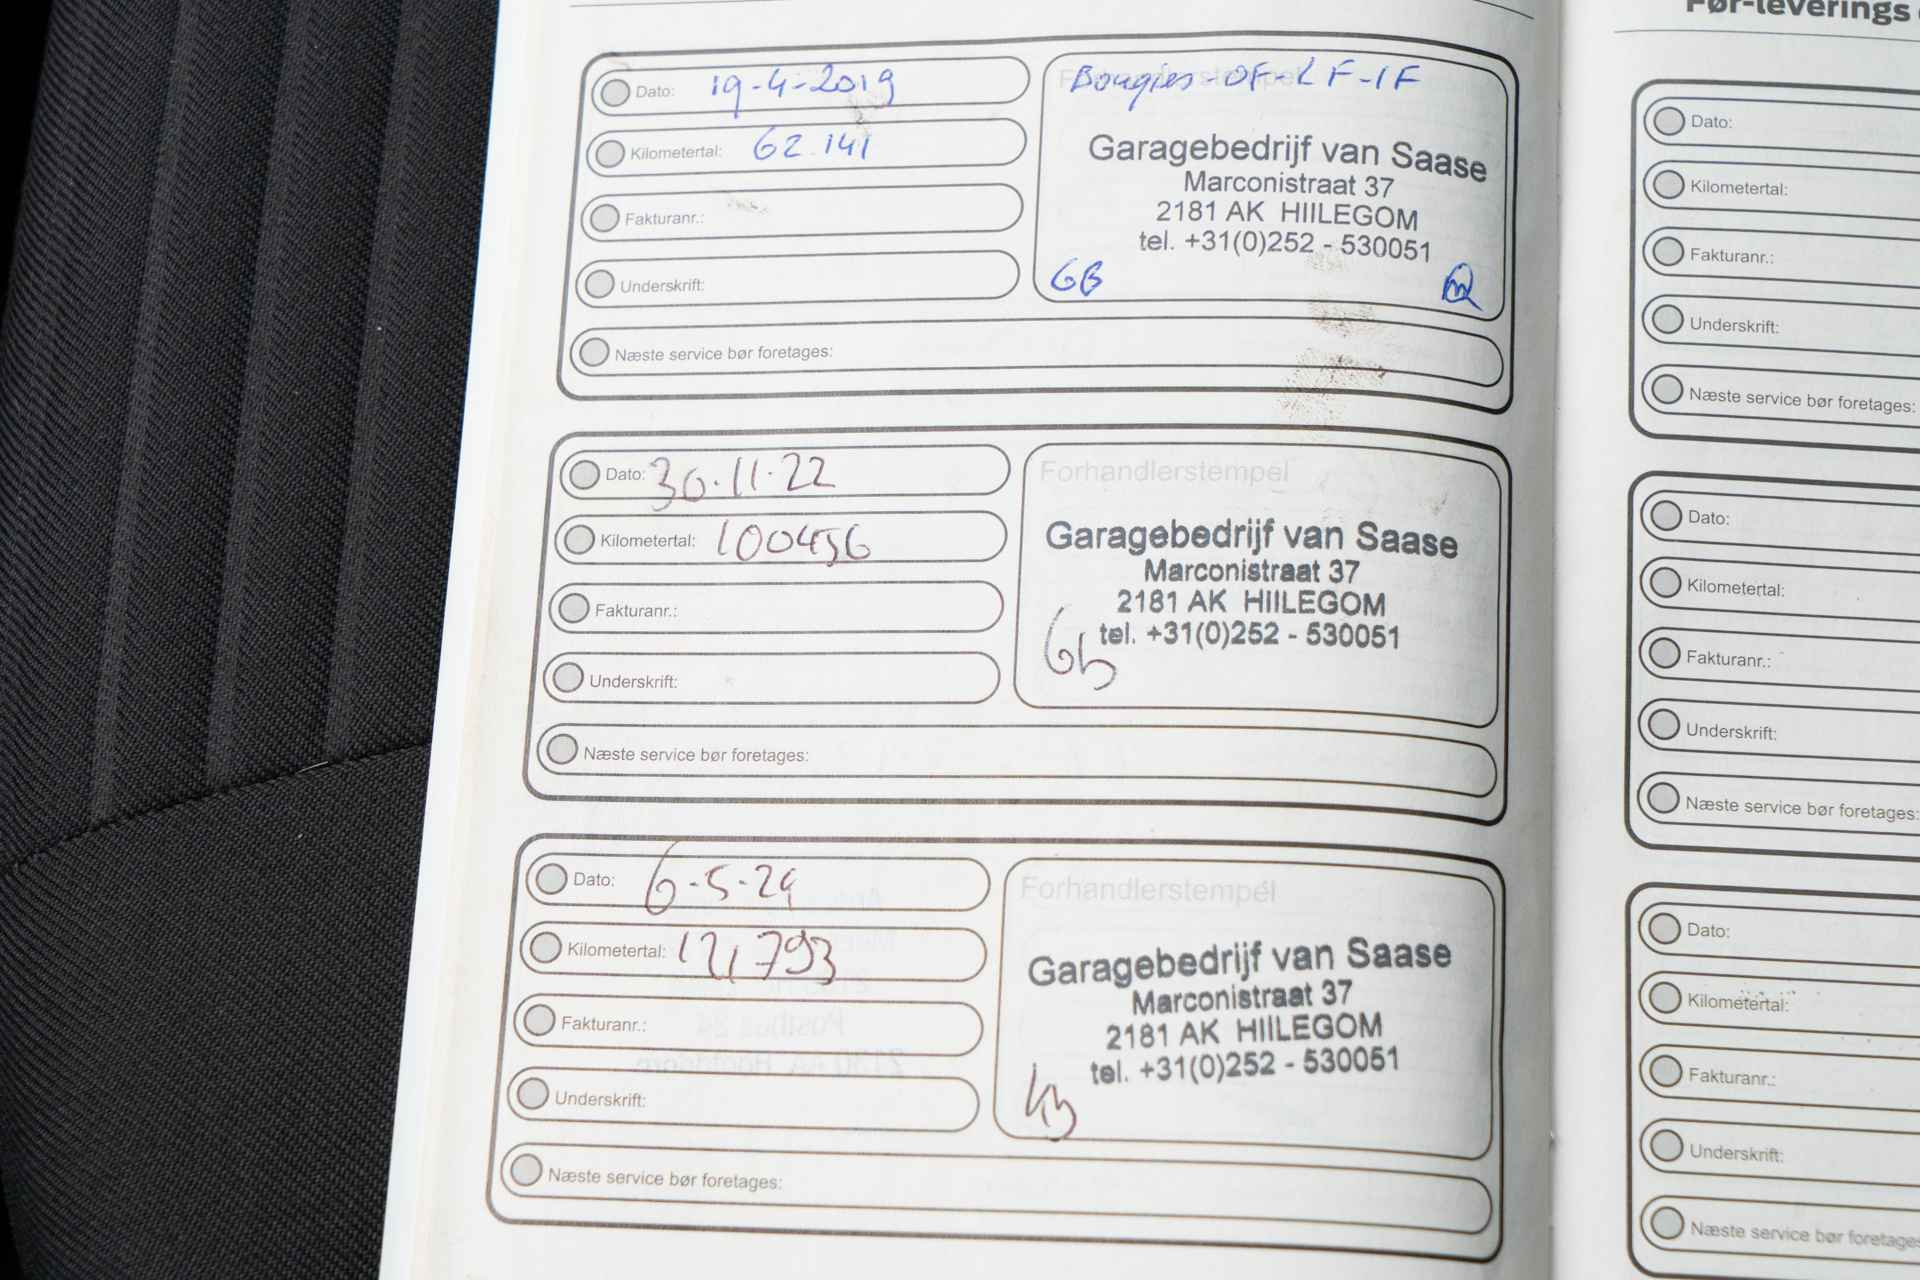 Dato: 19-4-2019
Kilometertal: 62.141
Fakturanr.:
Underskrift:
Næste service bør foretages:
Bougies-OF-LF-IF
Garagebedrijf van Saase
Marconistraat 37
2181 AK HIILEGOM
tel. +31(0)252 - 530051
GB
Dato: 30.11.22
Kilometertal: 100456
Fakturanr.:
Underskrift:
Næste service bør foretages:
Forhandlerstempel
Garagebedrijf van Saase
Marconistraat 37
2181 AK HIILEGOM
tel. +31(0)252 - 530051
Gb
Dato: 6-5-24
Kilometertal: 121793
Fakturanr.:
Underskrift:
Næste service bør foretages:
Forhandlerstempel
Garagebedrijf van Saase
Marconistraat 37
2181 AK HIILEGOM
tel. +31(0)252 - 530051
Før-leverings
Dato:
Kilometertal:
Fakturanr.:
Underskrift:
Næste service bør foretages:
Dato:
Kilometertal:
Fakturanr.:
Underskrift:
Næste service bør foretages:
Dato:
Kilometertal:
Fakturanr.:
Underskrift:
Næste service bør foretages: